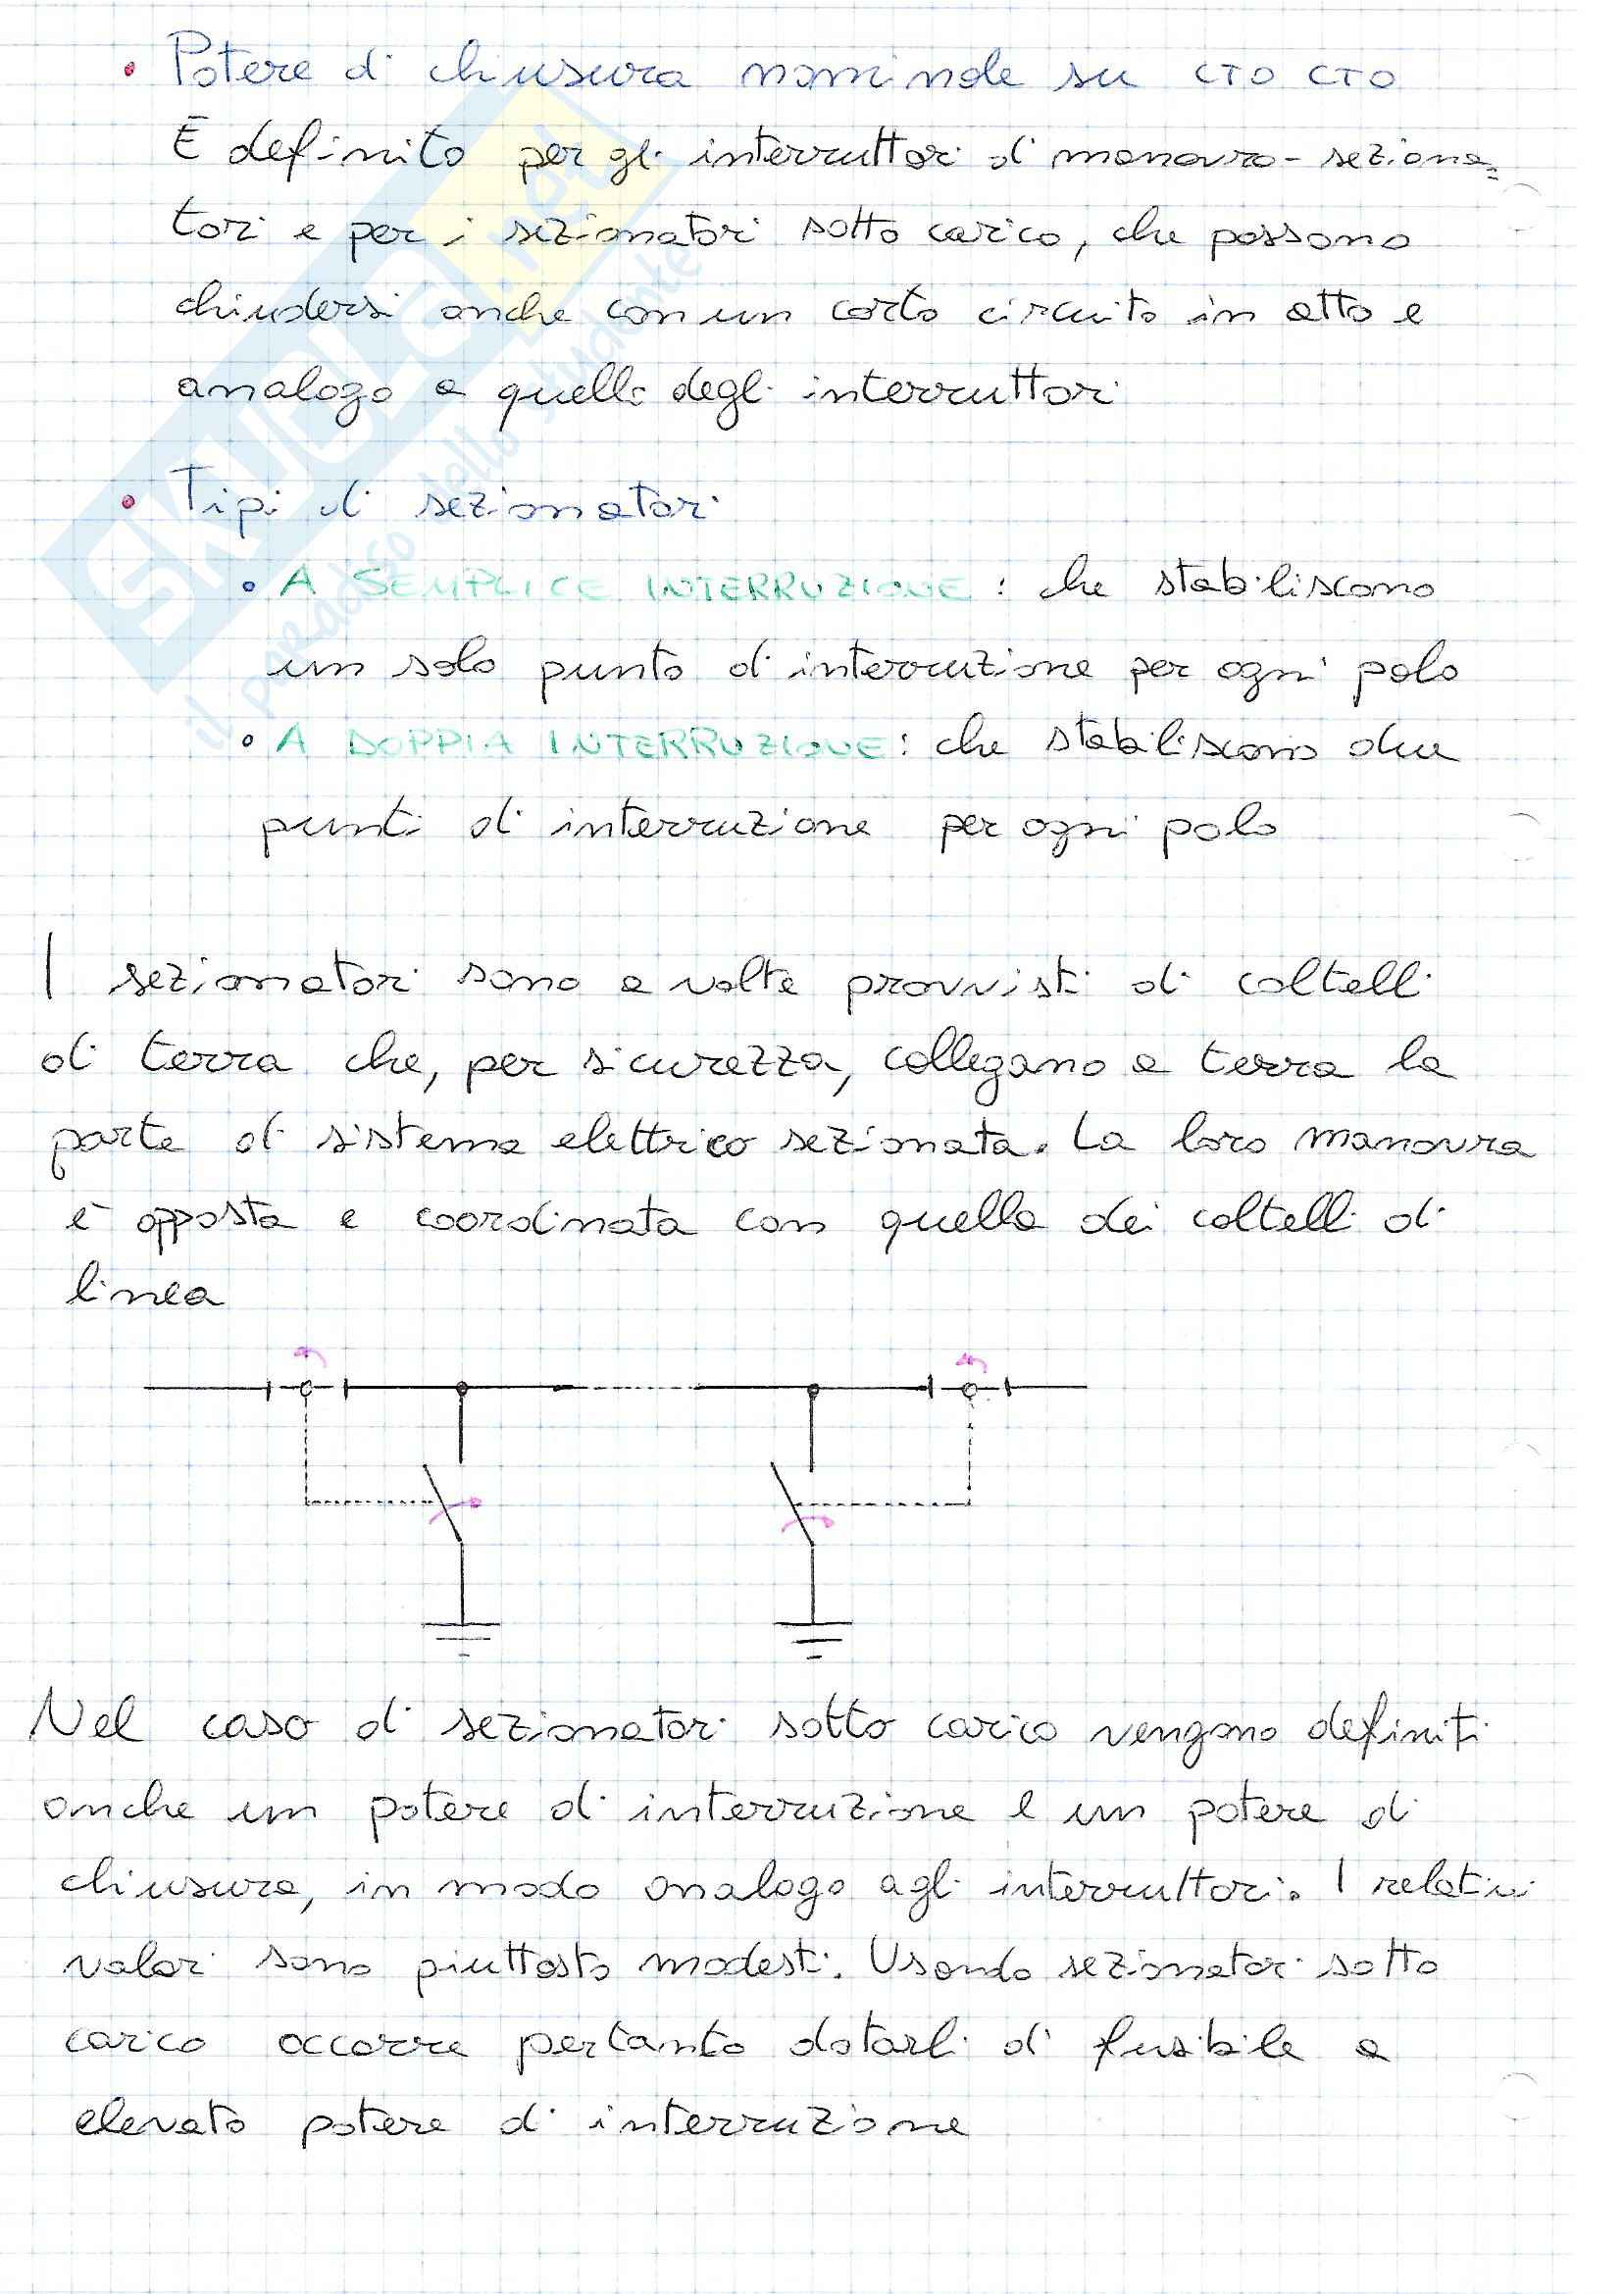 • Potere di chiusura nominale su CTO CTO
E definito per gli interruttori di manovra-seziona=
tori e per i sezionatori sotto carico, che possono
chiudersi anche con un corto circuito in atto e
analogo a quello degli interruttori
• Tipi di sezionatori
• A SEMPLICE INTERRUZIONE : che stabiliscono
un solo punto di interruzione per ogni polo
• A DOPPIA INTERRUZIONE : che stabiliscono due
punti di interruzione per ogni polo
I sezionatori sono a volte provvisti di coltelli
di terra che, per sicurezza, collegano a terra la
parte di sistema elettrico sezionata. La loro manovra
è opposta e coordinata con quella dei coltelli di
linea
Nel caso di sezionatori sotto carico vengono definiti
anche un potere di interruzione e un potere di
chiusura, in modo analogo agli interruttori. I relativi
valori sono piuttosto modesti. Usando sezionatori sotto
carico occorre pertanto dotarli di fusibile a
elevato potere di interruzione
SKUOLA.net
il paradiso dello studente